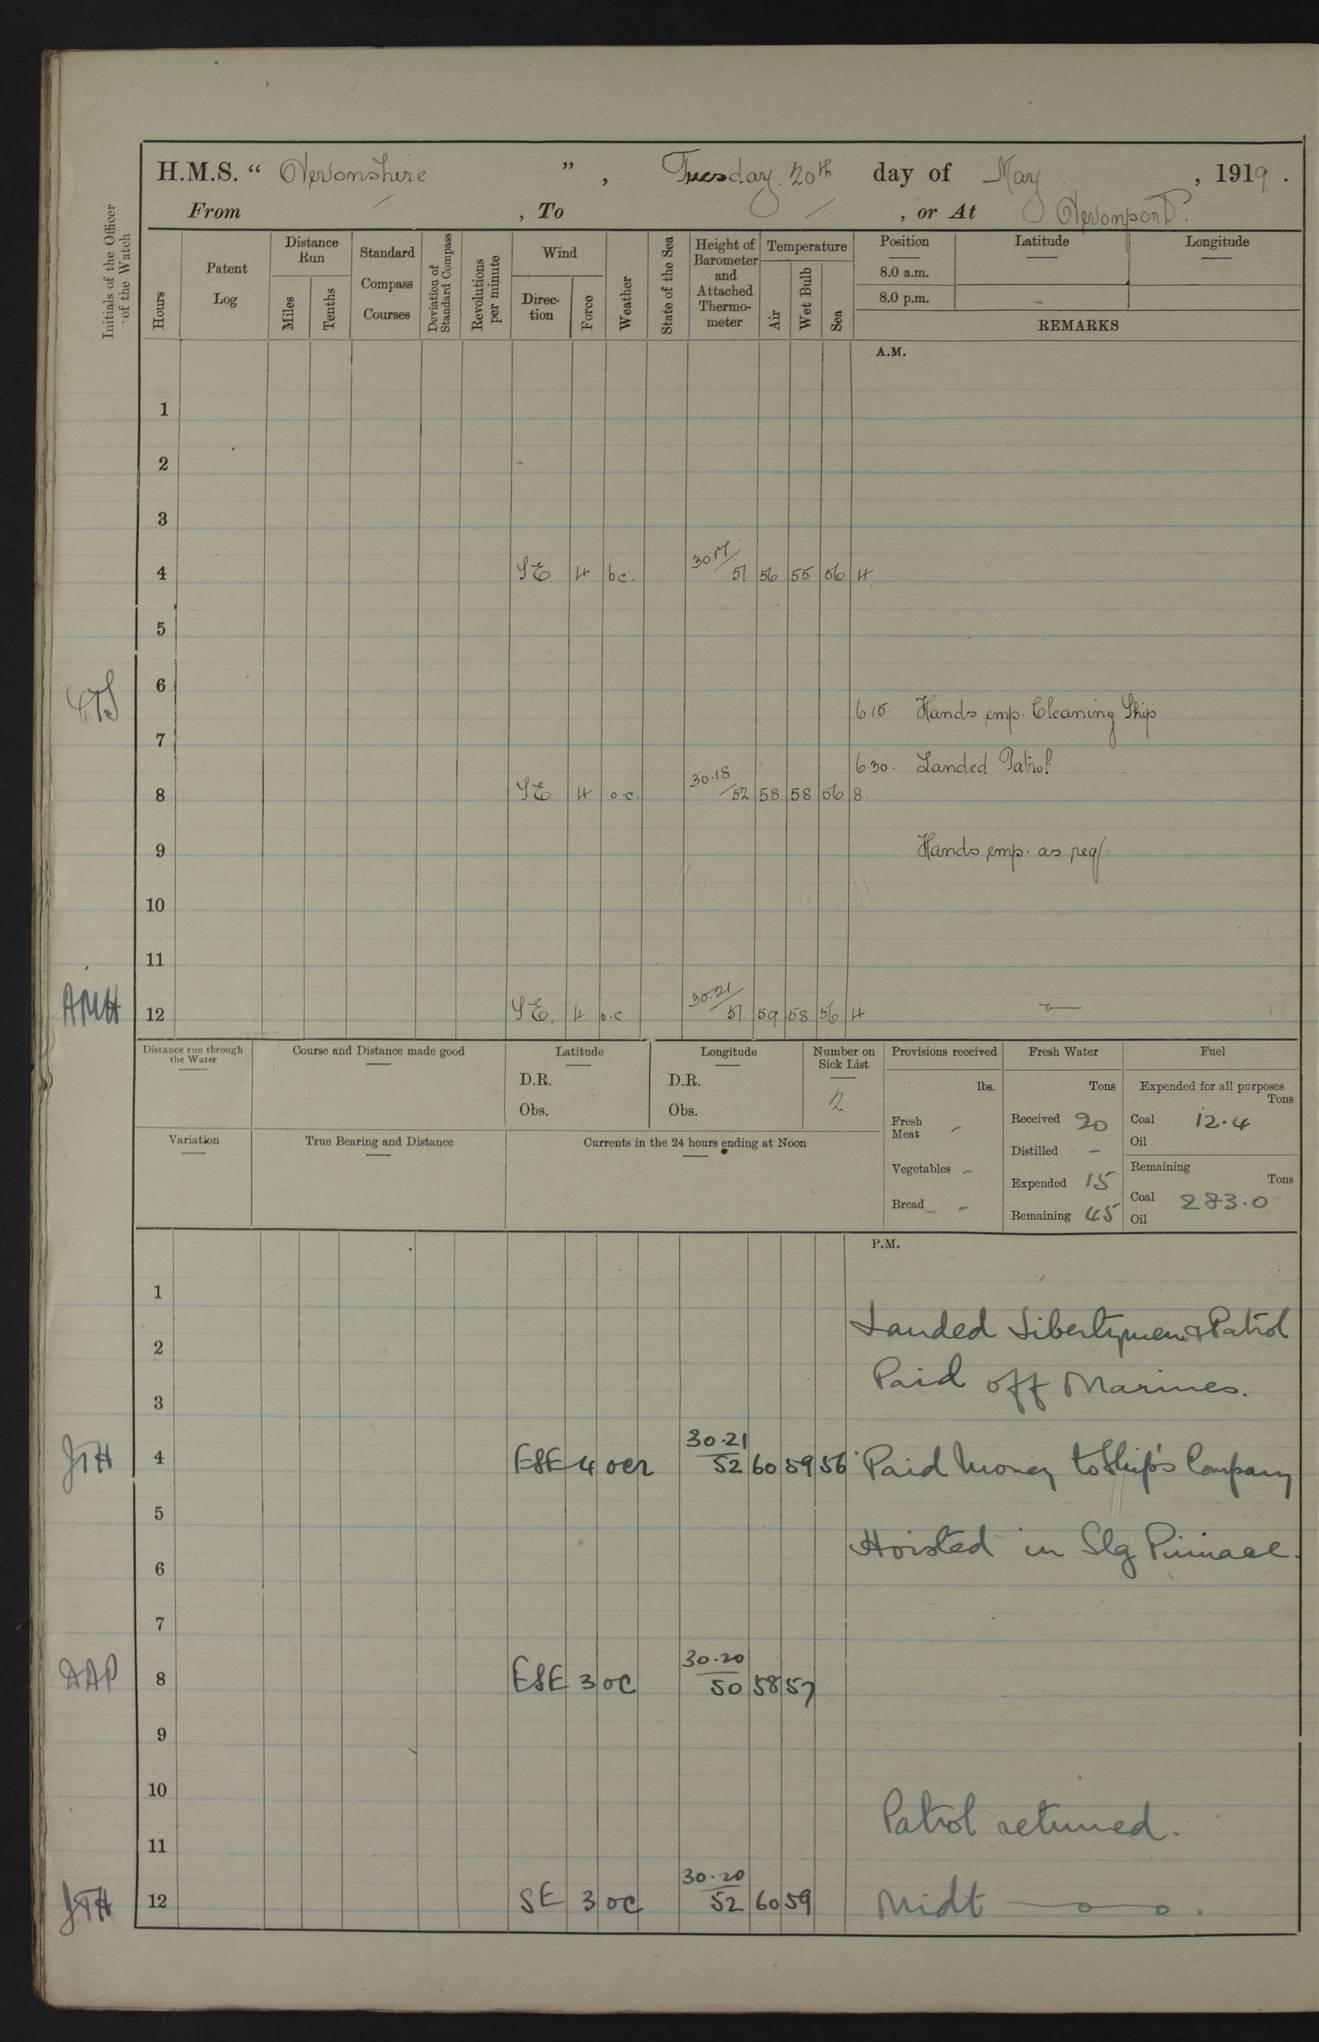 H.M.S. “ Devonshire ” , Tuesday 20th day of May , 1919 .
From / , To / , or At Devonport.
Initials of the Officer of the Watch
Hours
Patent Log
Distance Run
Miles
Tenths
Standard Compass Courses
Deviation of Standard Compass
Revolutions per minute
Wind
Direc-tion
Force
Weather
State of the Sea
Height of Barometer and Attached Thermo-meter
Temperature
Air
Wet Bulb
Sea
Position Latitude Longitude
8.0 a.m.
8.0 p.m. -
REMARKS
A.M.
1
2
3
4 SE 4 bc. 30.17/51 56 55 56 4
5
6
CTS
615 Hands emp. Cleaning Ship
7
630. Landed Patrol
8 SE 4 o.c. 30.18/52 58 58 56 8
9 Hands emp. as req/.
10
11
AMH 12 SE. 4 b.c 30.21/51 59 58 56 4
Distance run through the Water
Course and Distance made good
Latitude
D.R.
Obs.
Longitude
D.R.
Obs.
Number on Sick List
2
Provisions received
lbs.
Fresh Meat -
Vegetables -
Bread -
Fresh Water
Tons
Received 20
Distilled -
Expended 15
Remaining 45
Fuel
Expended for all purposes
Tons
Coal 12.4
Oil
Remaining
Tons
Coal 283.0
Oil
Variation
True Bearing and Distance
Currents in the 24 hours ending at Noon
P.M.
1
Landed Libertymen & Patrol
2
Paid off Marines.
3
JTH 4 ESE 4 ocr 30.21/52 60 59 56 Paid Money to Ship's Company
5
Hoisted in Slg Pinnace.
6
7
DAP 8 ESE 3 oc 30.20/50 58 57
9
10
Patrol returned.
11
JTH 12 SE 3 oc 30.20/52 60 59 Midt